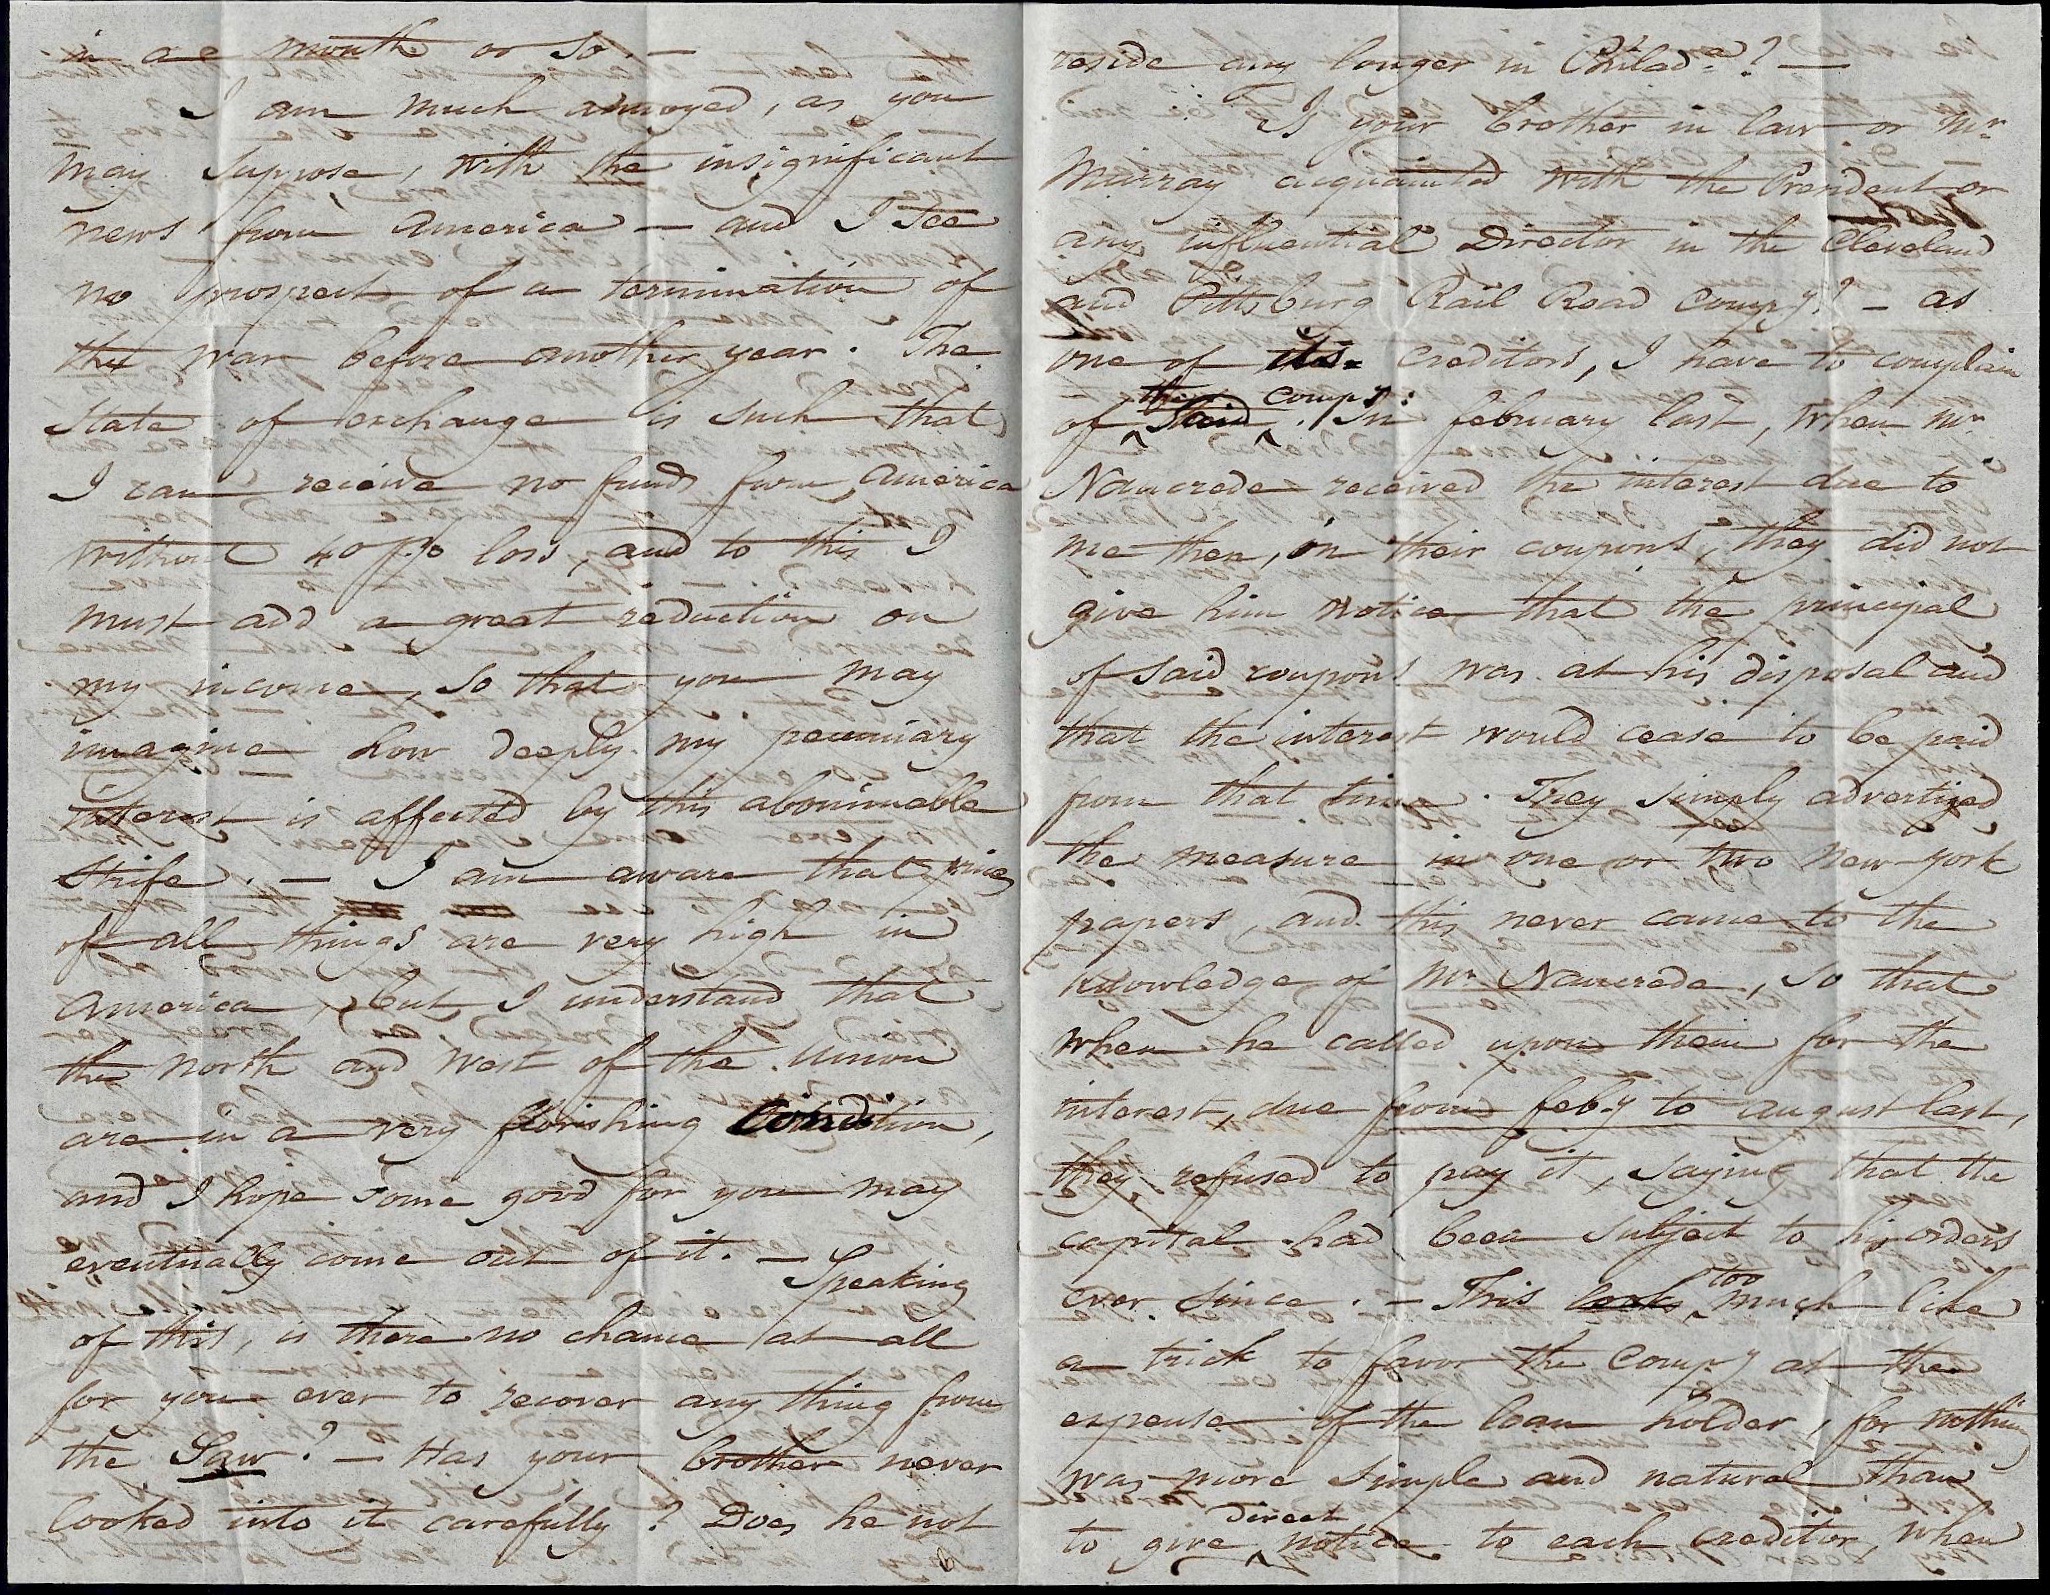 in a month or so. —
I am much annoyed, as you
may suppose, with the insignificant
news from America — and I see
no prospect of a termination of
the war before another year. The
state of exchange is such that
I can receive no funds from America
without 40 p% loss, and to this I
must add a great reduction on
my income, so that you may
imagine how deeply my pecuniary
interest is affected by this abominable
strife. — I am aware that prices
of all things are very high in
America, but I understand that
the North and West of the Union
are in a very florishing condition,
and I hope some good for you may
eventually come out of it. — Speaking
of this, is there no chance at all
for you ever to recover any thing from
the Saw? — Has your brother never
looked into it carefully? Does he not
reside any longer in Philad.a? —
Is your brother in law or Mr
Murray acquainted with the President or
any influential Director in the Cleveland
and Pittsburg Rail Road Compy? — as
one of its creditors, I have to complain
of this Compy. In february last, when Mr
Nancrede received the interest due to
me then, on their coupons, they did not
give him notice that the principal
of said coupons was at his disposal and
that the interest would cease to be paid
from that time. They simply advertized
the measure in one or two New-york
papers, and this never came to the
knowledge of Mr Nancrede, so that
when he called upon them for the
interest, due from feb.y to august last,
they refused to pay it, saying that the
capital had been subject to his orders
ever since. — This looks too much like
a trick to favor the Compy at the
expense of the loan holder, for nothing
was more simple and natural than
to give direct notice to each creditor, when